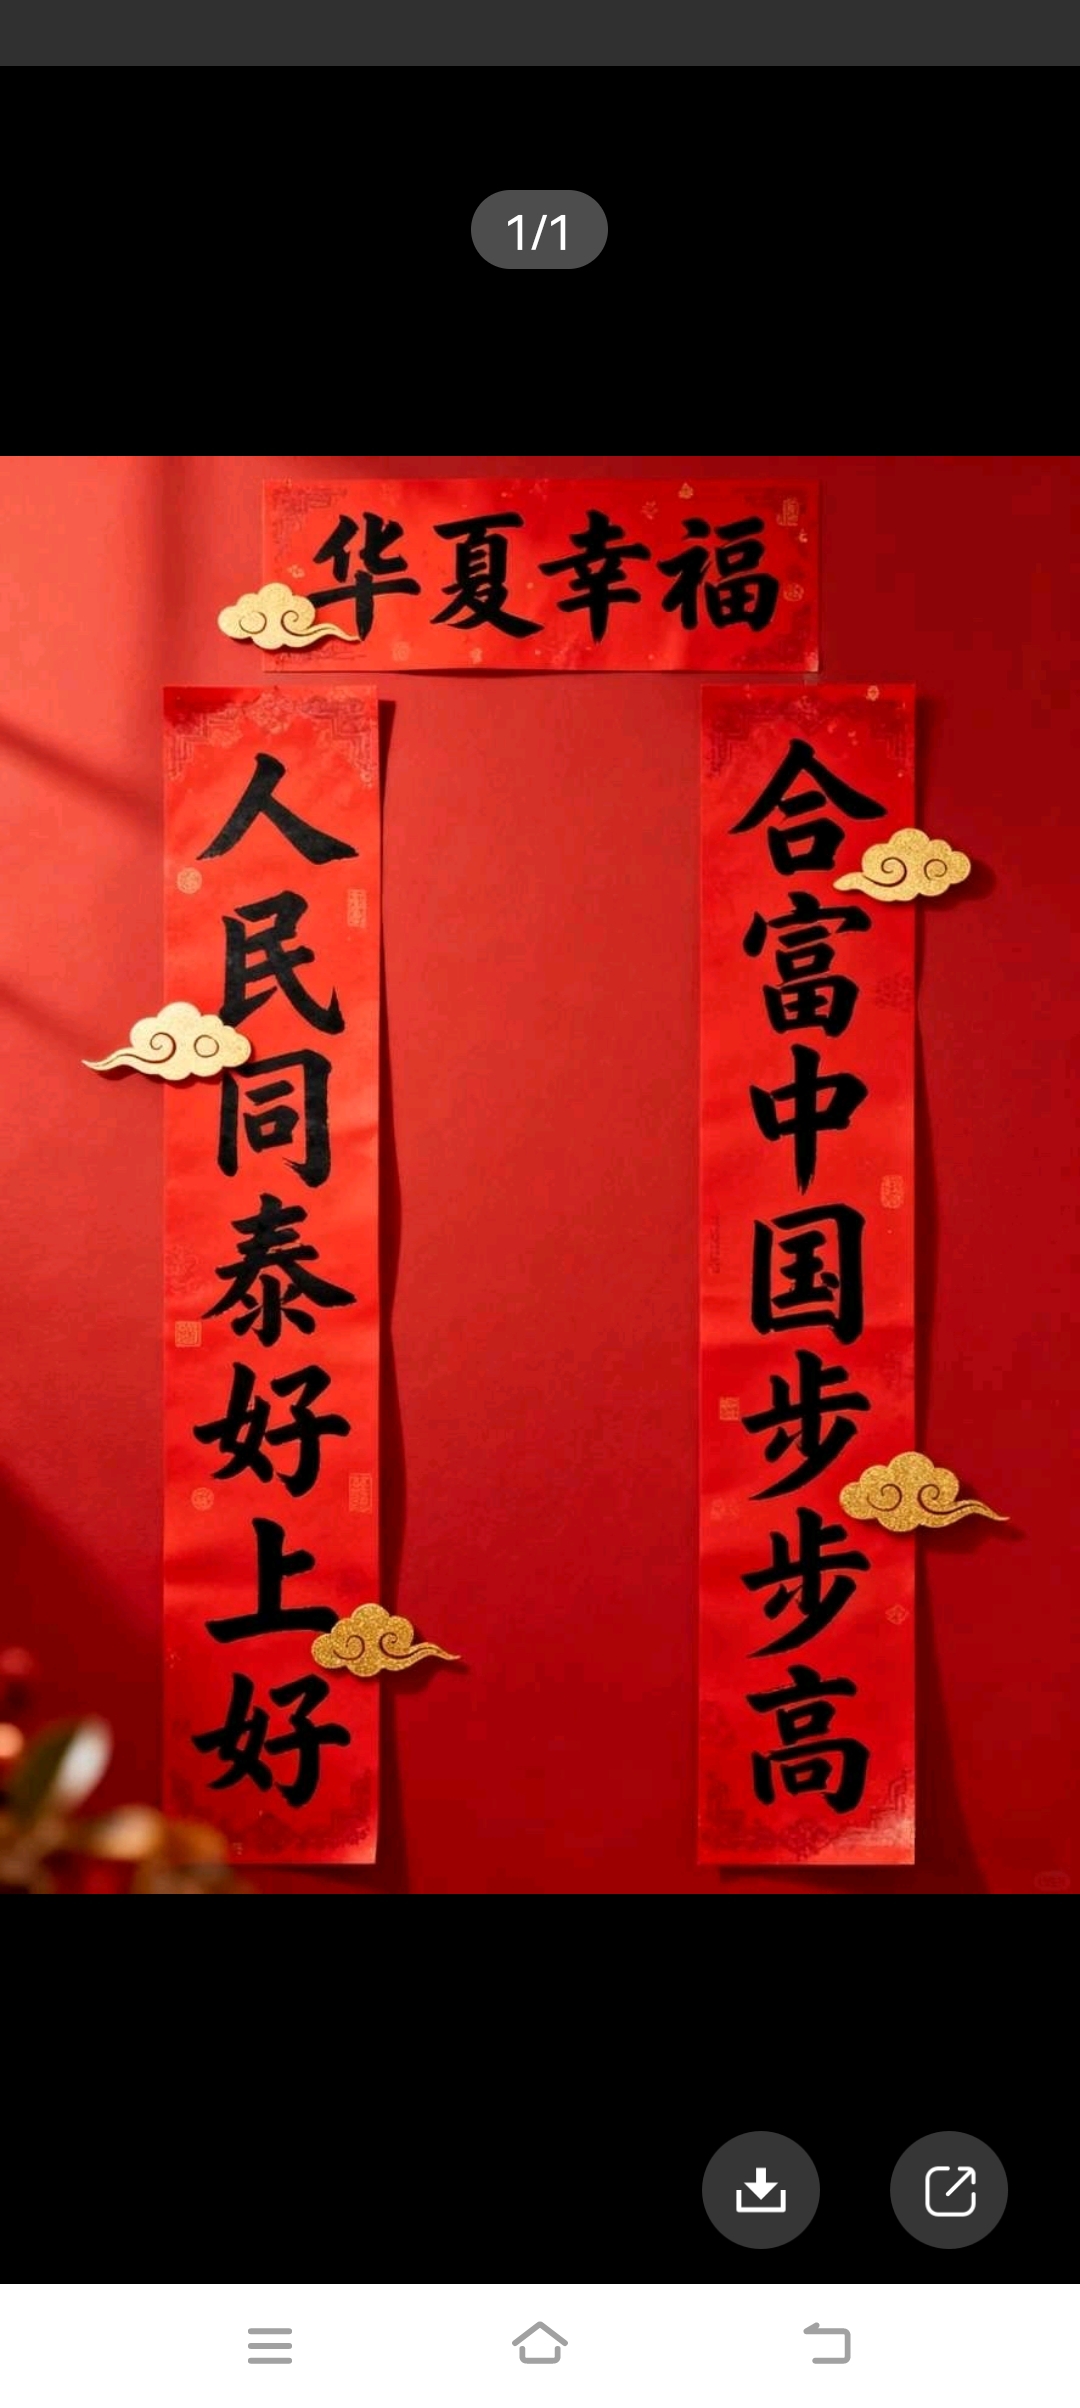 1/1
华夏幸福
合富中国步步高
人民同泰好上好